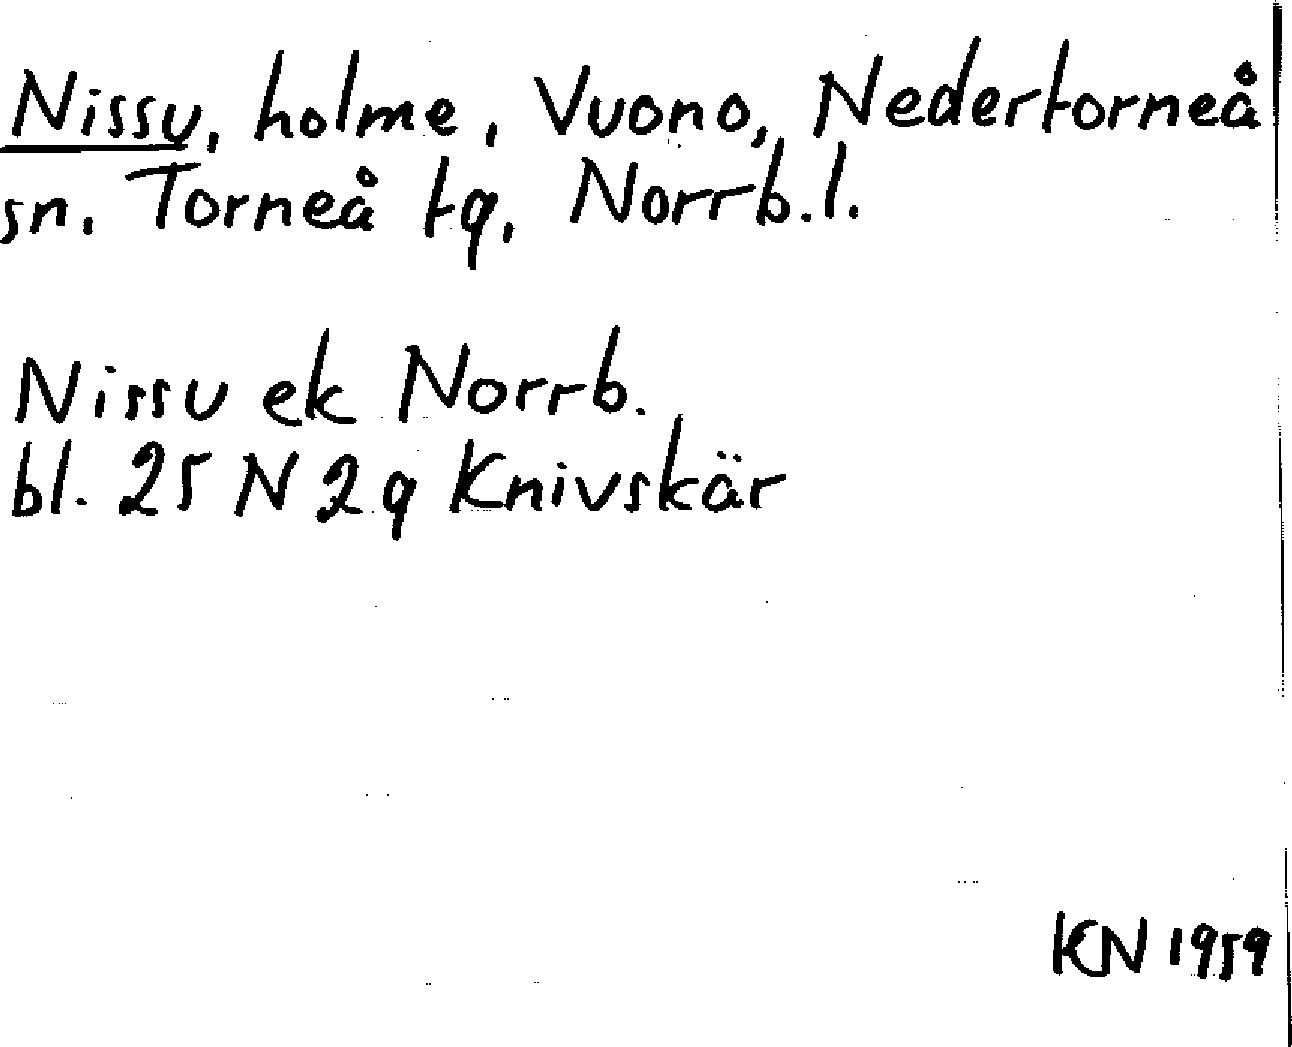 Nissu, holme, Vuono, Nedertorneå
sn. Torneå tg, Norrb.l.
Nissu ek Norrb.
bl. 25 N 2 g Knivskär
KN 1959